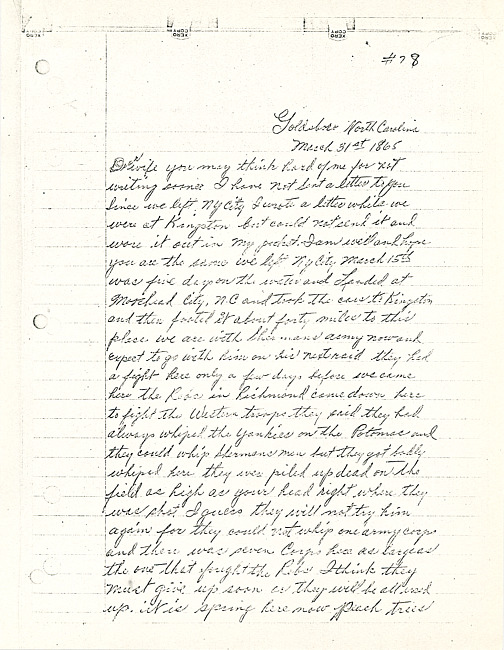 #78
Goldsboro North Carolina
March 31st 1865
Dr wife you may think hard of me for not
writing sooner I have not sent a letter to you
since we left NyCity I wrote a letter while we
were at Kingston but could not send it and
wore it out in my pocket. I am well and hope
you are the same we left NyCity March 15th
was five days on the water and Landed at
Morehead City, NC and took the cars to Kingston
and then footed it about forty miles to this
place we are with Shermans army now and
expect to go with him on his next raid they had
a fight here only a few days before we came
here the Rebs in Richmond came down here
to fight the Western troops they said they had
always whiped the Yankies on the Potomac and
they could whip Shermans men but they got badly
whiped here they was piled up dead on the
field as high as your head right where they
was shot I guess they will not try him
again for they could not whip one army corps
and there was seven Corps here as large as
the one that fought the Rebs I think they
must give up soon or they will be all used
up. it is Spring here now peach trees